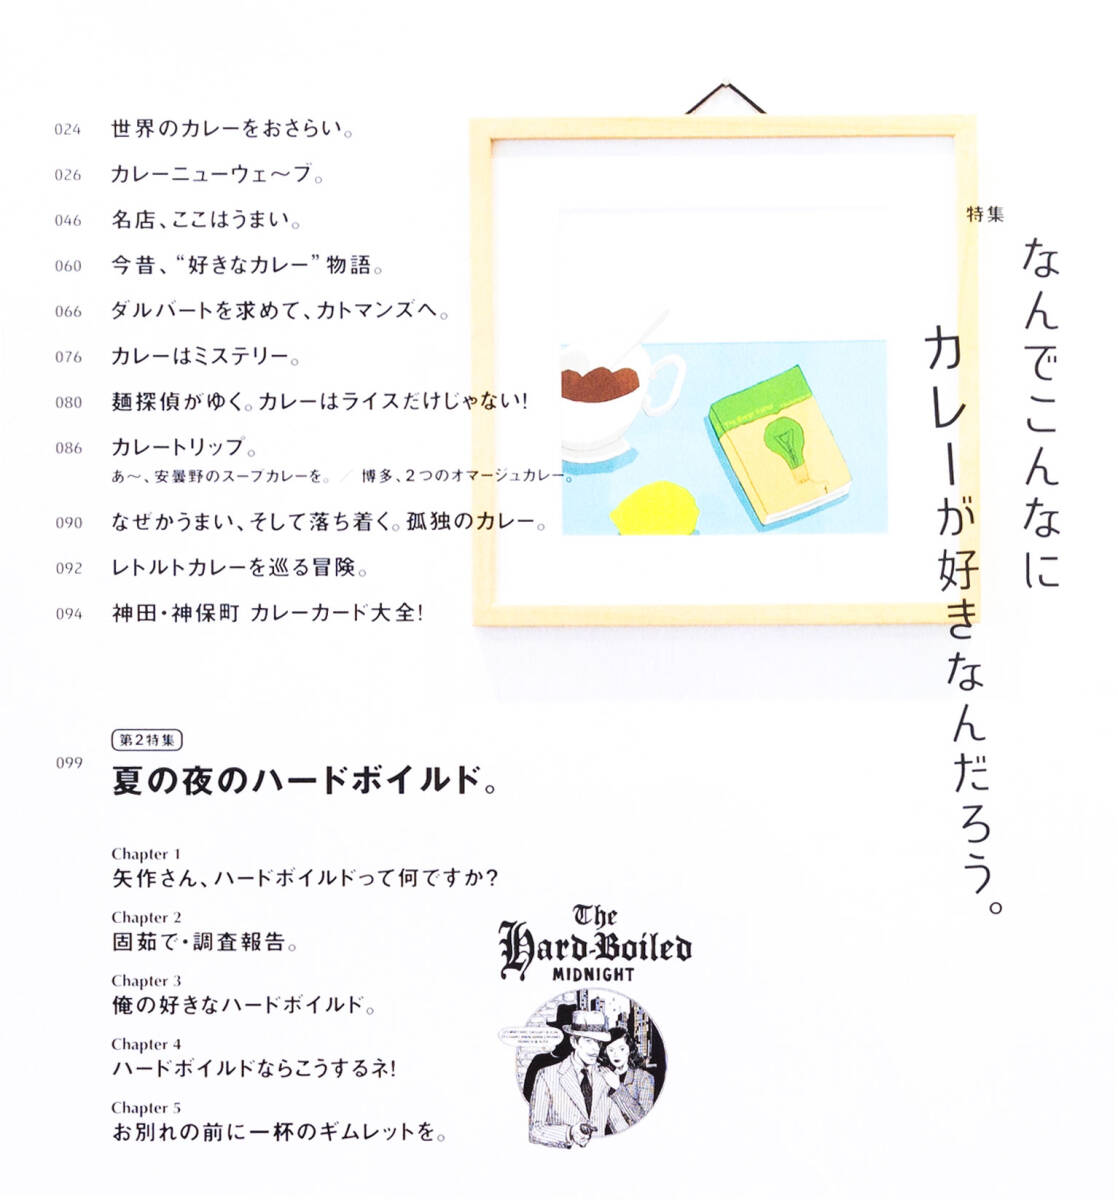 特集
なんでこんなに
カレーが好きなんだろう。
024 世界のカレーをおさらい。
026 カレーニューウェ〜ブ。
046 名店、ここはうまい。
060 今昔、“好きなカレー”物語。
066 ダルバートを求めて、カトマンズへ。
076 カレーはミステリー。
080 麺探偵がゆく。カレーはライスだけじゃない!
086 カレートリップ。
あ〜、安曇野のスープカレーを。／博多、2つのオマージュカレー。
090 なぜかうまい、そして落ち着く。孤独のカレー。
092 レトルトカレーを巡る冒険。
094 神田・神保町 カレーカード大全!
第2特集
099 夏の夜のハードボイルド。
Chapter 1
矢作さん、ハードボイルドって何ですか?
Chapter 2
固茹で・調査報告。
Chapter 3
俺の好きなハードボイルド。
Chapter 4
ハードボイルドならこうするネ!
Chapter 5
お別れの前に一杯のギムレットを。
The
Hard-Boiled
MIDNIGHT